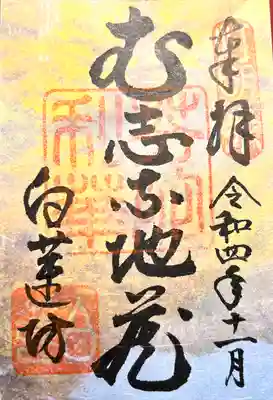 奉拝
令和四年十一月
む志な地蔵
白蓮坊